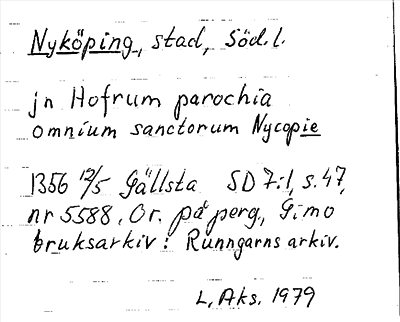 Nyköping, stad, Söd.l.
jn Hofrum parochia
omnium sanctorum Nycopie
1356 12/5 Gällsta SD 7:1, s. 47,
nr 5588. Or. på perg., Gimo
bruksarkiv: Runngarns arkiv.
L. Aks. 1979